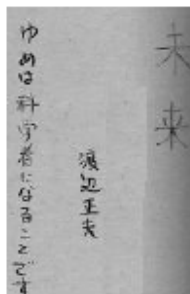 未来
渡辺正夫
ゆめは科学者になることです